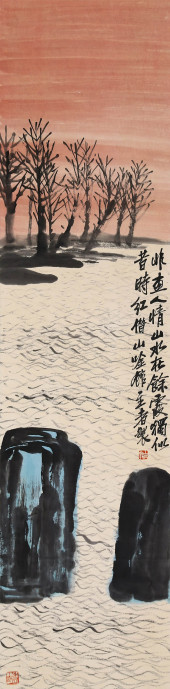 人情山水在餘霞似
昔時紅借山吟館主者製